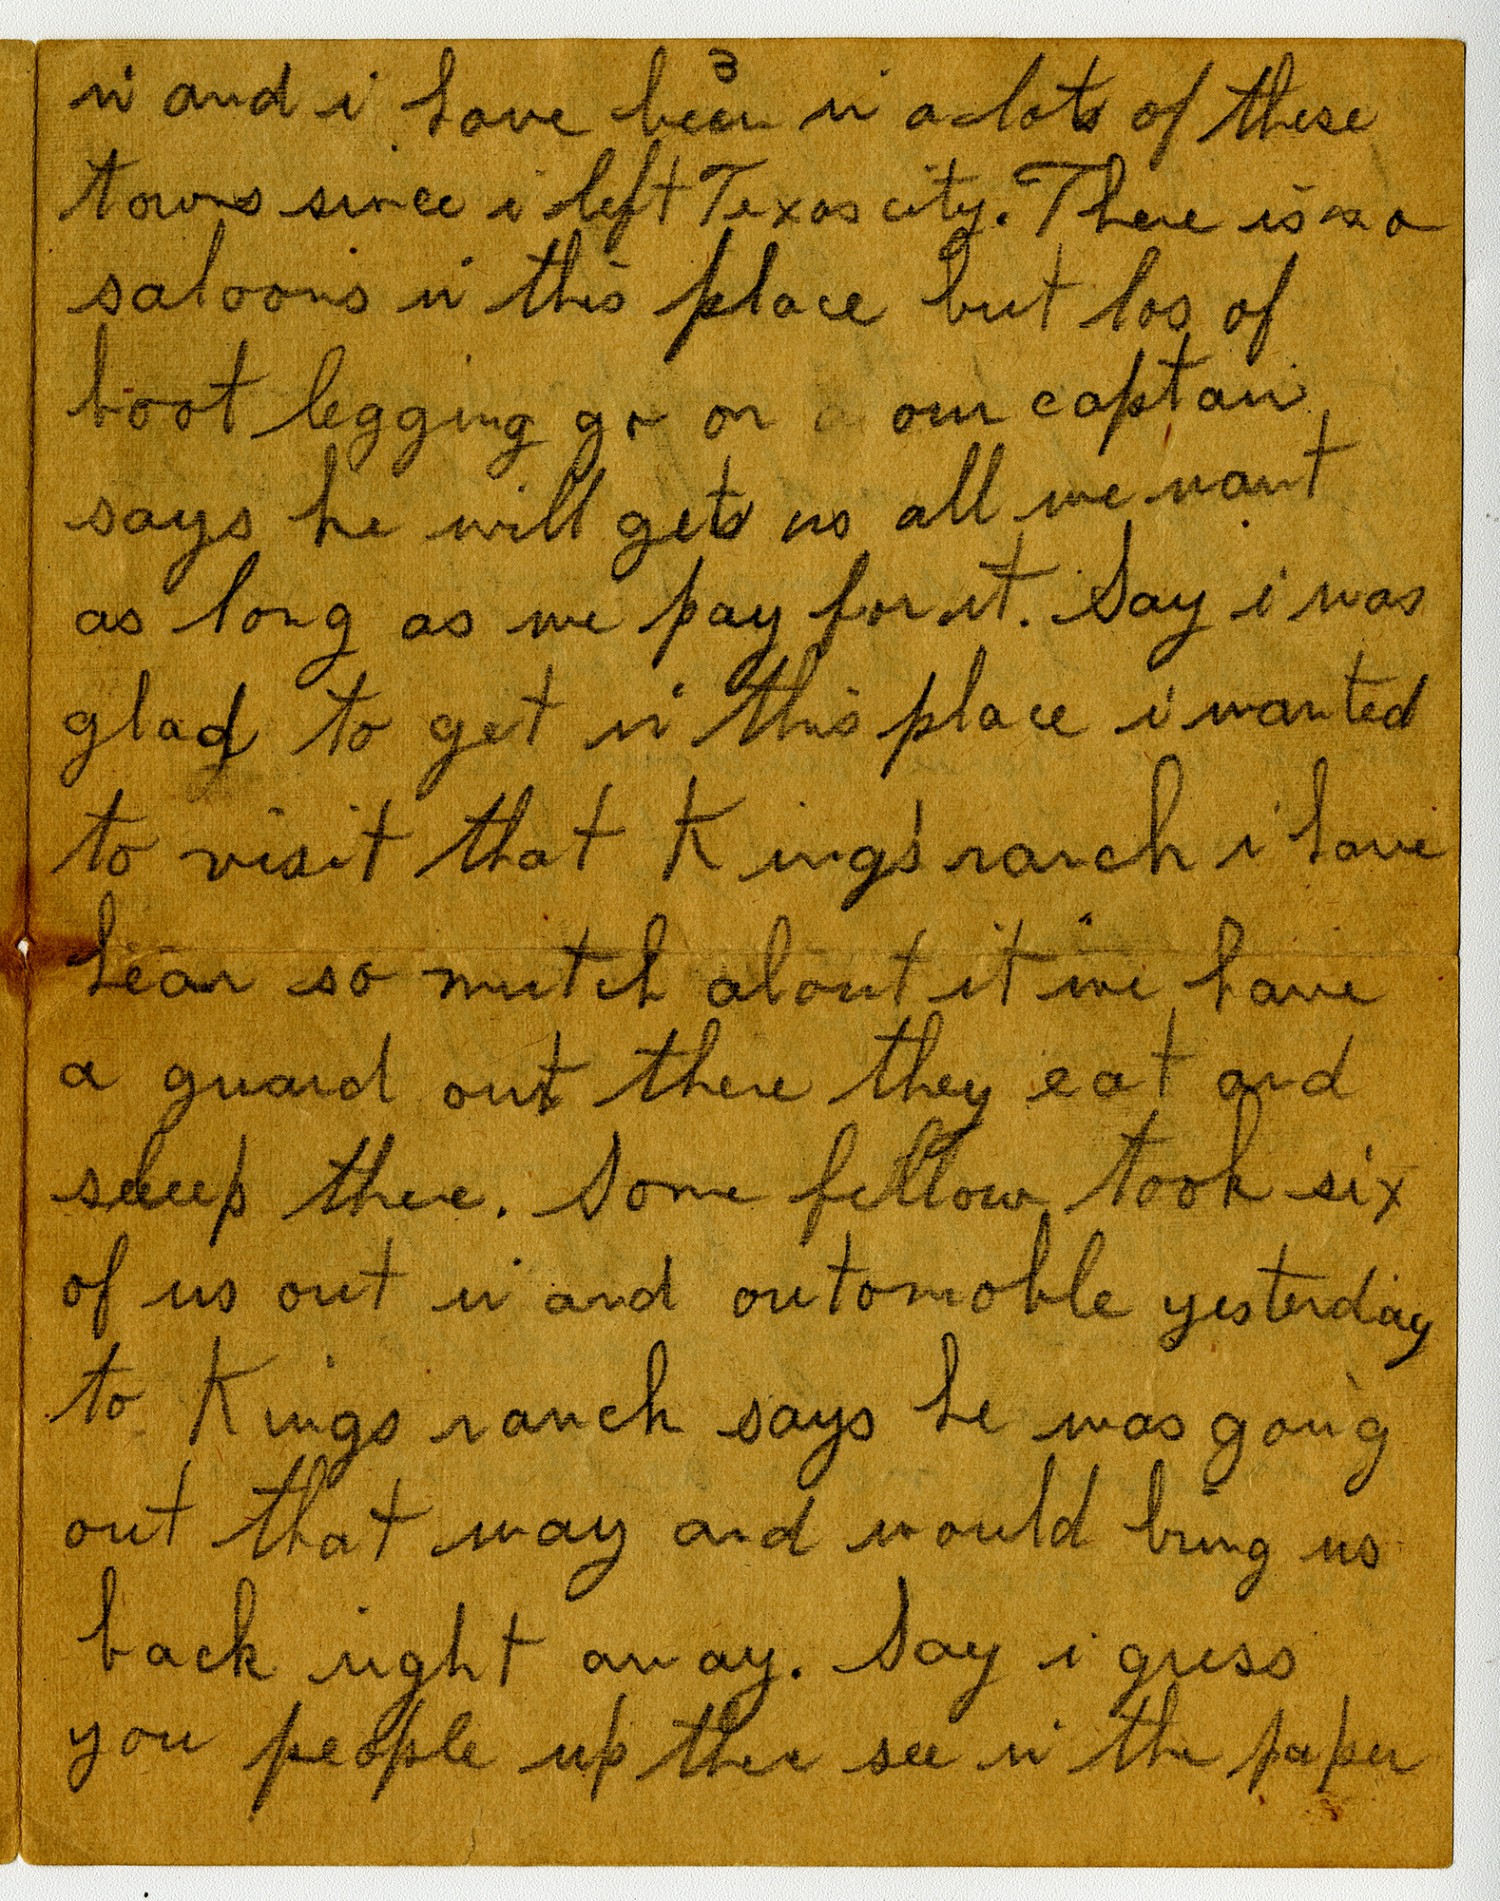 3
in and i have bean in a lots of these
towns since i left Texas city. There is no
saloons in this place but los of
boot legging go on our captain
says he will gets us all we want
as long as we pay for it. Say i was
glad to get in this place i wanted
to visit that King's ranch i have
hear so mutch about it we have
a guard out there they eat and
sleep there. Some fellow took six
of us out in and outomoble yesterday
to Kings ranch says he was going
out that way and would bring us
back right away. Say i guess
you people up there see in the paper